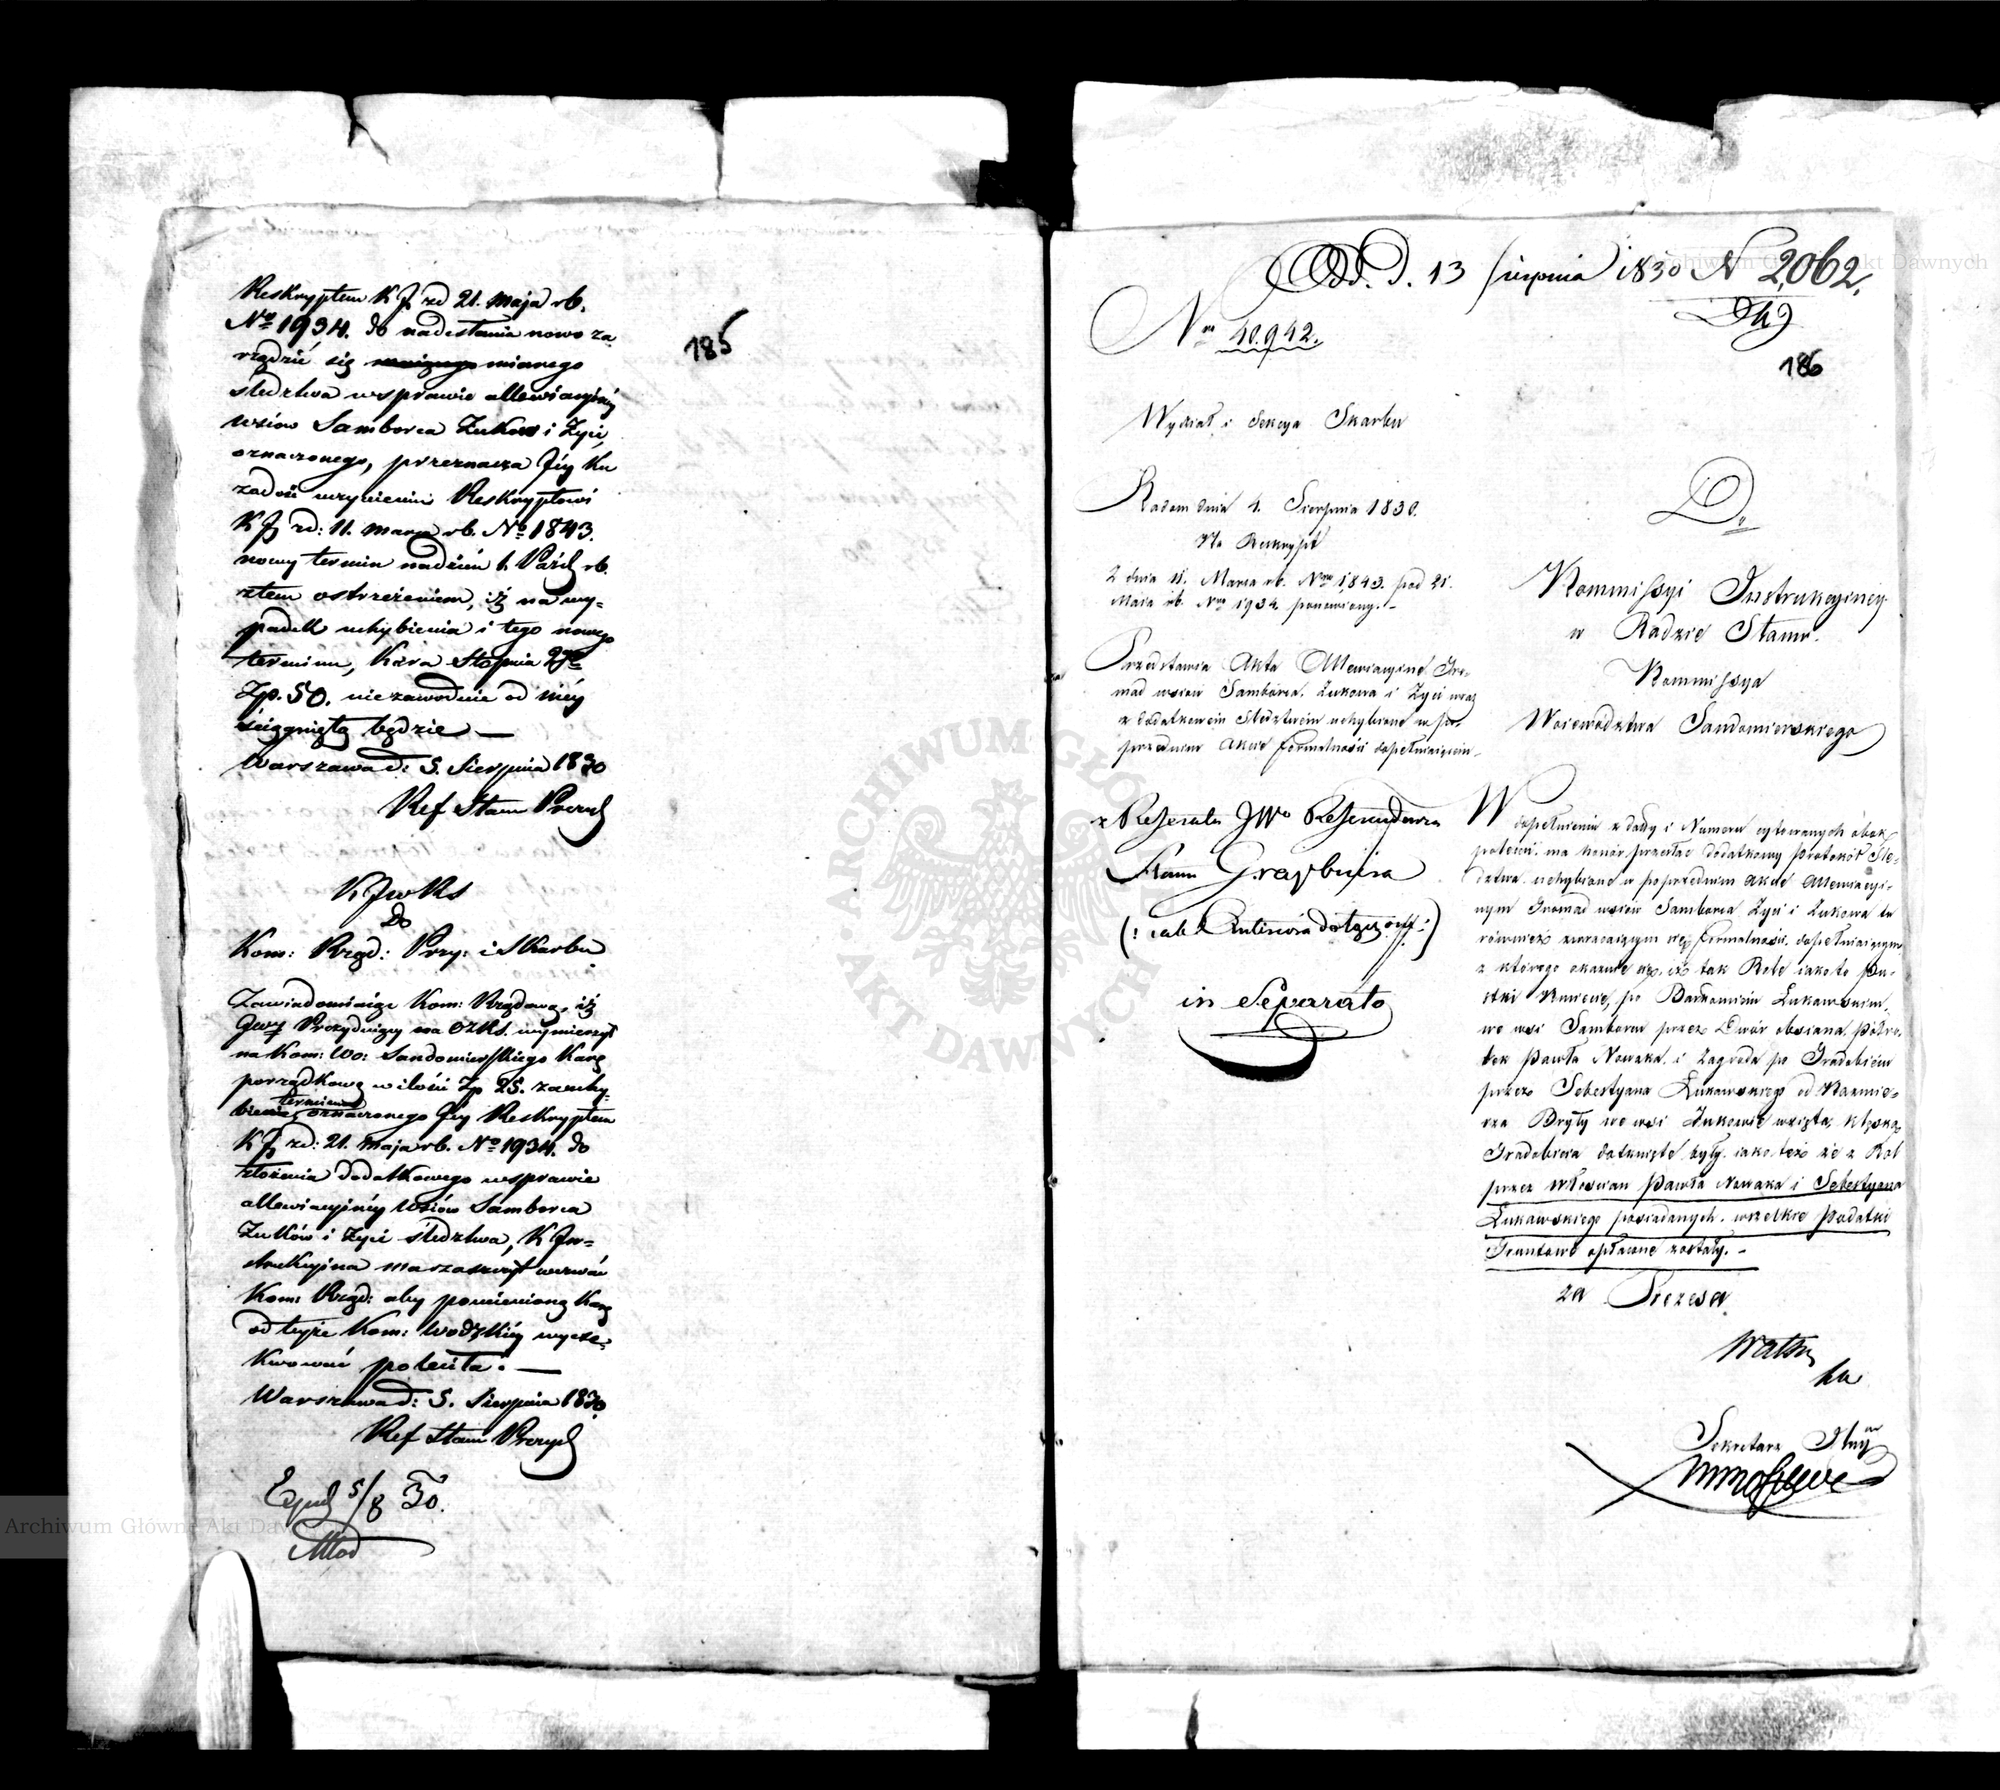 Reskryptem K J zd 21. Maja rb.
No 1934. do nadesłania nowo za
rządzić się mianego
śledztwa wsprawie allewiacyjnéy
wsiow Samborca Żukow i Życi,
oznaczonego, przeznacza Jéy Ku
zadość uczynieniu Reskryptowi
K J zd: 11. Marca rb. No 1843.
nowy termin nadzień 1. Paźd rb.
ztem ostrzeżeniem, iż na wy-
padek uchybienia i tego nowego
terminu, Kara Stopnia 2go
Zp. 50. niezawodnie od niéy
ściągniętą będzie —
Warszawa d: 5. Sierpnia 1830
Ref Stanu Prezyd
185
K Jwks
do
Kom: Rząd: Przy: i Skarbu
Zawiadomiając Kom: Rządową, iż
Prezydujący na wymierzył
na Kom: Wo: Sandomierskiego Karę
porządkową w ilości Zp 25. zauchy-
bienie terminu oznaczonego Jéy Reskryptem
K J zd: 21. Maja rb. No 1934. do
złożenia dodatkowego wsprawie
allewiacyjnéy Wsiów Samborca
Żuków i Życi śledztwa, K Jn-
strukcyjna ma zaszczyt wezwać
Kom: Rząd: aby pomienioną Karę
od teyże Kom: Wodzkiéy wyexe-
kwować poleciła. —
Warszawa d: 5. Sierpnia 1830.
Ref Stanu Prezyd
Exped 5/8 30.
Odd. D. 13 Sierpnia 1830 N 2,062.
186
Nro 40.942.
Wydział i Sekcya Skarbu
Radom dnia 4. Sierpnia 1830.
Na Reskrypt
z dnia 11. Marca rb. Nro 1,843. pod 21.
Maia rb. Nro 1934. ponowiony. –
Przedstawia Akta Allewiacyine Gro-
mad wsiow Samborca, Żukowa i Życi wraz
z dodatkowem Śledztwem uchybione w po-
przednim Akcie formalności dopełniaiącem –
z Referatu JWo Referendarza
Stanu Grąbniza
in Separato
Do
Kommissyi Instrukcyiney
w Radzie Stanu.
Kommissya
Woiewództwa Sandomierskiego
W dopełnieniu z daty i Numeru cytowanych obok
poleceń, ma honor przesłać dodatkowy Protokół Śle-
dztwa uchybione w poprzednim Akcie Allewiacyi-
nym Gromad wsiow Samborca Życi i Żukowa tu
również zwracaiącym się formalności dopełniaiącym,
z którego okazuie się, iż tak Role iako to Pu-
stki po Łukawskim,
we wsi Samborcu przez Dwór obsiana, Półro-
lek Pawła Nowaka i Zagroda po Gradobiciu
przez Sebestyana Łukawskiego od Kazmie-
rza Bryły we wsi Żukowie wzięta, klęską
Gradobicia dotknięte były, iako też że z Ról
przez Włościan Pawła Nowaka i Sebestyana
Łukawskiego posiadanych, wszelkie Podatki
Gruntowe opłacone zostały. –
za Prezesa
Sekretarz Jlny